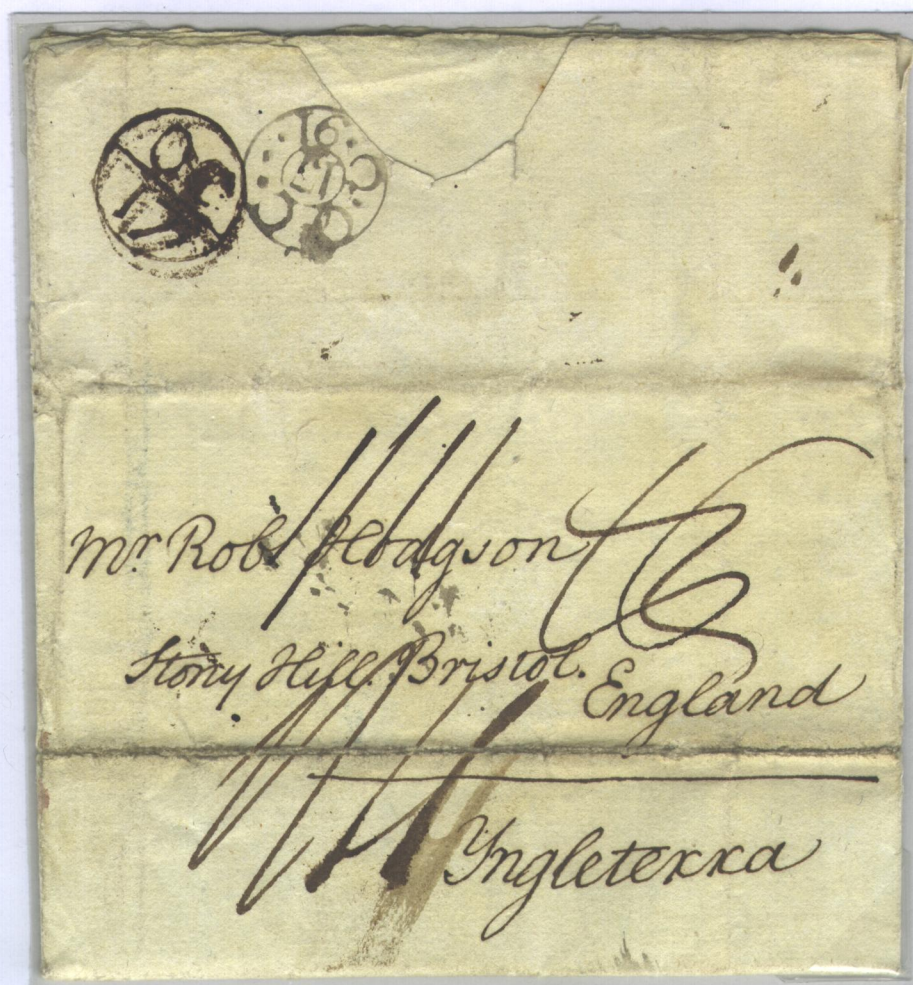 Mr Robt Hodgson
Stony Hill. Bristol.
England
Yngleterra